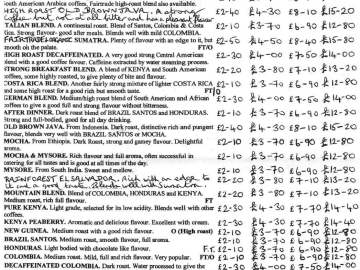 North American Arabica coffees. Fairtrade high-roast blend also available.
HIGH ROAST OLD BROWN JAVA, a strong £2-40 £4-30 £8-10 £15-20
coffee but not at all bitter and has a pleasant flavour
ITALIAN BLEND. A continental roast. Blend of Santos, Colombia & Costa £2-10 £3-70 £6-90 £12-80
Rica. Strong flavour- good after meals. Blends well with mild COLOMBIA.
FAIRTRADE ORGANIC SUMATRA. Plenty of flavour with an edge to it, but £2-50 £4-50 £8-40 £15-80
smooth on the palate. FT/O
HIGH ROAST DECAFFEINATED. A very good strong Central American £2-30 £4-00 £7-50 £14-00
blend with a good coffee flavour. Caffeine extracted by water steaming process.
STRONG BREAKFAST BLEND. A blend of KENYA and South American £2-20 £3-80 £7-10 £13-20
coffees, some highly roasted, to give plenty of bite and flavour.
COSTA RICA BLEND. Another fairly strong mixture of lighter COSTA RICA £2-10 £3-70 £6-90 £12-80
and some high roast for a good rich but smooth taste. FT/O
GERMAN BLEND. Medium/high roast blend of South American and African £2-30 £4-00 £7-50 £14-00
coffees to give a full and strong flavour without bitterness.
AFTER DINNER. Dark roast blend of BRAZIL SANTOS and HONDURAS. £2-10 £3-70 £6-90 £12-80
Strong and full-bodied, good for all day drinking.
OLD BROWN JAVA. From Indonesia. Dark roast, distinctive rich and pungent £2-40 £4-30 £8-10 £15-20
flavour, blends very well with BRAZIL SANTOS or MOCHA.
MOCHA. From Ethiopia. Dark roast, strong and gamey flavour. Delightful £2-10 £3-70 £6-90 £12-80
aroma.
MOCHA & MYSORE. Rich flavour and full aroma, often successful in £2-10 £3-70 £6-90 £12-80
catering for all tastes and is good at all times of the day.
MYSORE. From South India. Sweet and mellow. £2-10 £3-70 £6-90 £12-80
RAINFOREST EL SALVADOR. Rich with an edge to £2-20 £3-90 £7-10 £13-20
it and a good taste. Blends well with Sumatra.
MOUNTAIN BLEND. Blend of COLOMBIA, HONDURAS and KENYA. £2-20 £3-80 £7-10 £13-20
Medium roast, rich full flavour. FT
PURE KENYA. Light grade, selected for its low acidity. Blends well with other £2-30 £4-30 £7-70 £14-40
coffees.
KENYA PEABERRY. Aromatic and delicious flavour. Excellent with cream. £2-30 £4-30 £7-70 £14-40
NEW GUINEA. Medium roast with a good rich flavour. O (High roast) £2-10 £3-70 £6-90 £12-80
BRAZIL SANTOS. Medium roast, smooth flavour, full aroma. £2-10 £3-70 £6-90 £12-80
HONDURAS. Light bodied with chocolate like flavour. £2-10 £3-70 £6-90 £12-80
COLOMBIA. Medium roast. Mild, full and rich flavour. Very popular. FT/O £2-10 £3-70 £6-90 £12-80
DECAFFEINATED COLOMBIA. Dark roast. Water processed to give the £2-30 £4-00 £7-50 £14-00